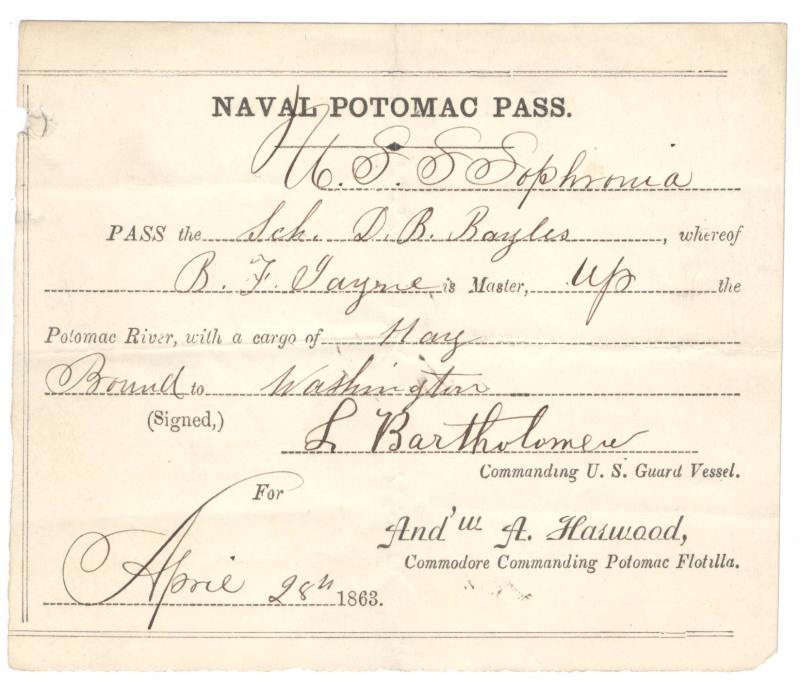 NAVAL POTOMAC PASS.
U. S. S Sophronia
PASS the Sch. D. B. Bayles, whereof
B. F. Jayne is Master, up the
Potomac River, with a cargo of Hay
Bound to Washington
(Signed,)
L Bartholomew
Commanding U. S. Guard Vessel.
For
And'w A. Harwood,
Commodore Commanding Potomac Flotilla.
April 28th 1863.